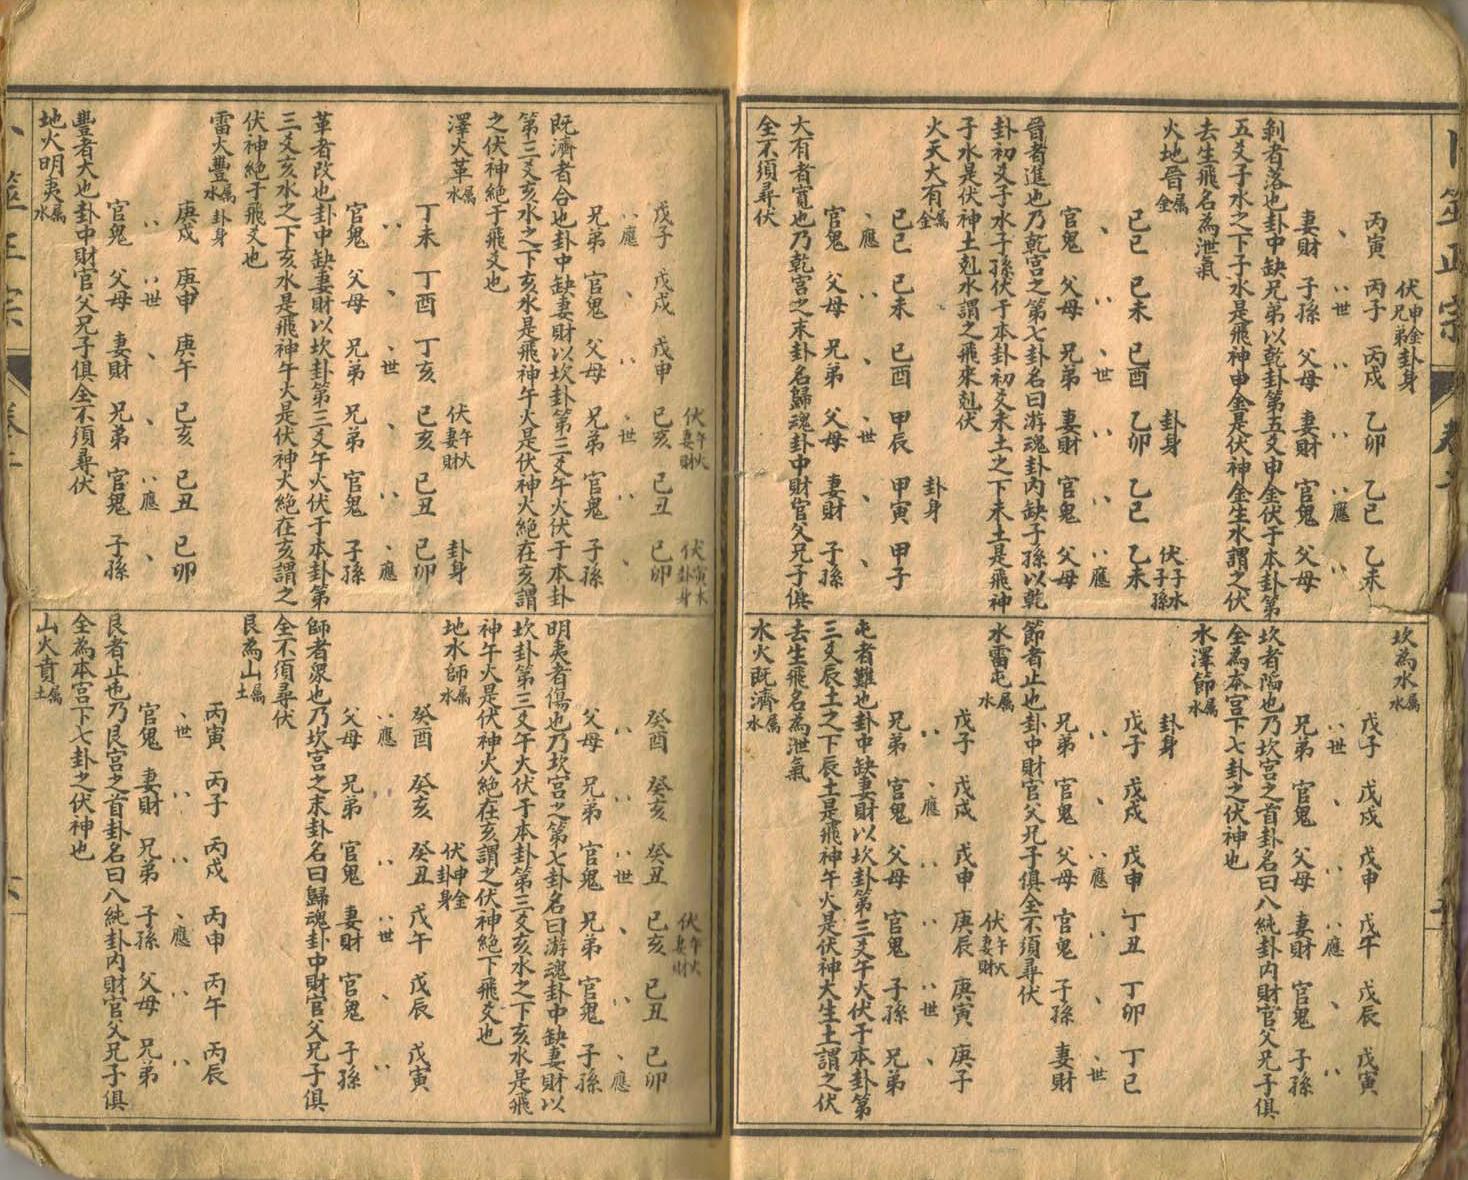 卜筮正宗
伏申金兄弟 卦身
丙寅 丙子 丙戌 乙卯 乙巳 乙未
、 〃世 〃 〃 〃應 〃
妻財 子孫 父母 妻財 官鬼 父母
剝者落也卦中缺兄弟以乾卦第五爻申金伏于本卦第
五爻子水之下子水是飛神申金是伏神金生水謂之伏
去生飛名為泄氣
火地晉屬金 卦身 伏子水子孫
己巳 己未 己酉 乙卯 乙巳 乙未
、 〃 、世 〃 〃 〃應
官鬼 父母 兄弟 妻財 官鬼 父母
晉者進也乃乾宮之第七卦名曰游魂卦內缺子孫以乾
卦初爻子水子孫伏于本卦初爻未土之下未土是飛神
子水是伏神土剋水謂之飛來剋伏
火天大有屬金 卦身
己巳 己未 己酉 甲辰 甲寅 甲子
、應 〃 、 、世 、 、
官鬼 父母 兄弟 父母 妻財 子孫
大有者寬也乃乾宮之末卦名歸魂卦中財官父兄子俱
全不須尋伏
坎為水屬水
戊子 戊戌 戊申 戊午 戊辰 戊寅
〃世 、 〃 〃應 、 〃
兄弟 官鬼 父母 妻財 官鬼 子孫
坎者陷也乃坎宮之首卦名曰八純卦內財官父兄子俱
全為本宮下七卦之伏神也
水澤節屬水
卦身
戊子 戊戌 戊申 丁丑 丁卯 丁巳
〃 、 〃應 〃 、 、世
兄弟 官鬼 父母 官鬼 子孫 妻財
節者止也卦中財官父兄子俱全不須尋伏
水雷屯屬水 伏午火妻財
戊子 戊戌 戊申 庚辰 庚寅 庚子
〃 、應 〃 〃 〃世 、
兄弟 官鬼 父母 官鬼 子孫 兄弟
屯者難也卦中缺妻財以坎卦第三爻午火伏于本卦第
三爻辰土之下辰土是飛神午火是伏神火生土謂之伏
去生飛名為泄氣
水火既濟屬水
伏午火妻財 伏寅木卦身
戊子 戊戌 戊申 己亥 己丑 己卯
〃應 、 〃 、世 〃 、
兄弟 官鬼 父母 兄弟 官鬼 子孫
既濟者合也卦中缺妻財以坎卦第三爻午火伏于本卦
第三爻亥水之下亥水是飛神午火是伏神火絕在亥謂
之伏神絕于飛爻也
澤火革屬水 伏午火妻財 卦身
丁未 丁酉 丁亥 己亥 己丑 己卯
〃 、 、世 、 〃 、應
官鬼 父母 兄弟 兄弟 官鬼 子孫
革者改也卦中缺妻財以坎卦第三爻午火伏于本卦第
三爻亥水之下亥水是飛神午火是伏神火絕在亥謂之
伏神絕于飛爻也
雷火豐屬水 卦身
庚戌 庚申 庚午 己亥 己丑 己卯
〃 〃世 、 、 〃應 、
官鬼 父母 妻財 兄弟 官鬼 子孫
豐者大也卦中財官父兄子俱全不須尋伏
地火明夷屬水
伏午火妻財
癸酉 癸亥 癸丑 己亥 己丑 己卯
〃 〃 〃世 、 〃 、應
父母 兄弟 官鬼 兄弟 官鬼 子孫
明夷者傷也乃坎宮之第七卦名曰游魂卦中缺妻財以
坎卦第三爻午火伏于本卦第三爻亥水之下亥水是飛
神午火是伏神火絕在亥謂之伏神絕下飛爻也
地水師屬水 伏申金卦身
癸酉 癸亥 癸丑 戊午 戊辰 戊寅
〃應 〃 〃 〃世 、 〃
父母 兄弟 官鬼 妻財 官鬼 子孫
師者眾也乃坎宮之末卦名曰歸魂卦中財官父兄子俱
全不須尋伏
艮為山屬土
丙寅 丙子 丙戌 丙申 丙午 丙辰
、世 〃 〃 、應 〃 〃
官鬼 妻財 兄弟 子孫 父母 兄弟
艮者止也乃艮宮之首卦名曰八純卦內財官父兄子俱
全為本宮下七卦之伏神也
山火賁屬土